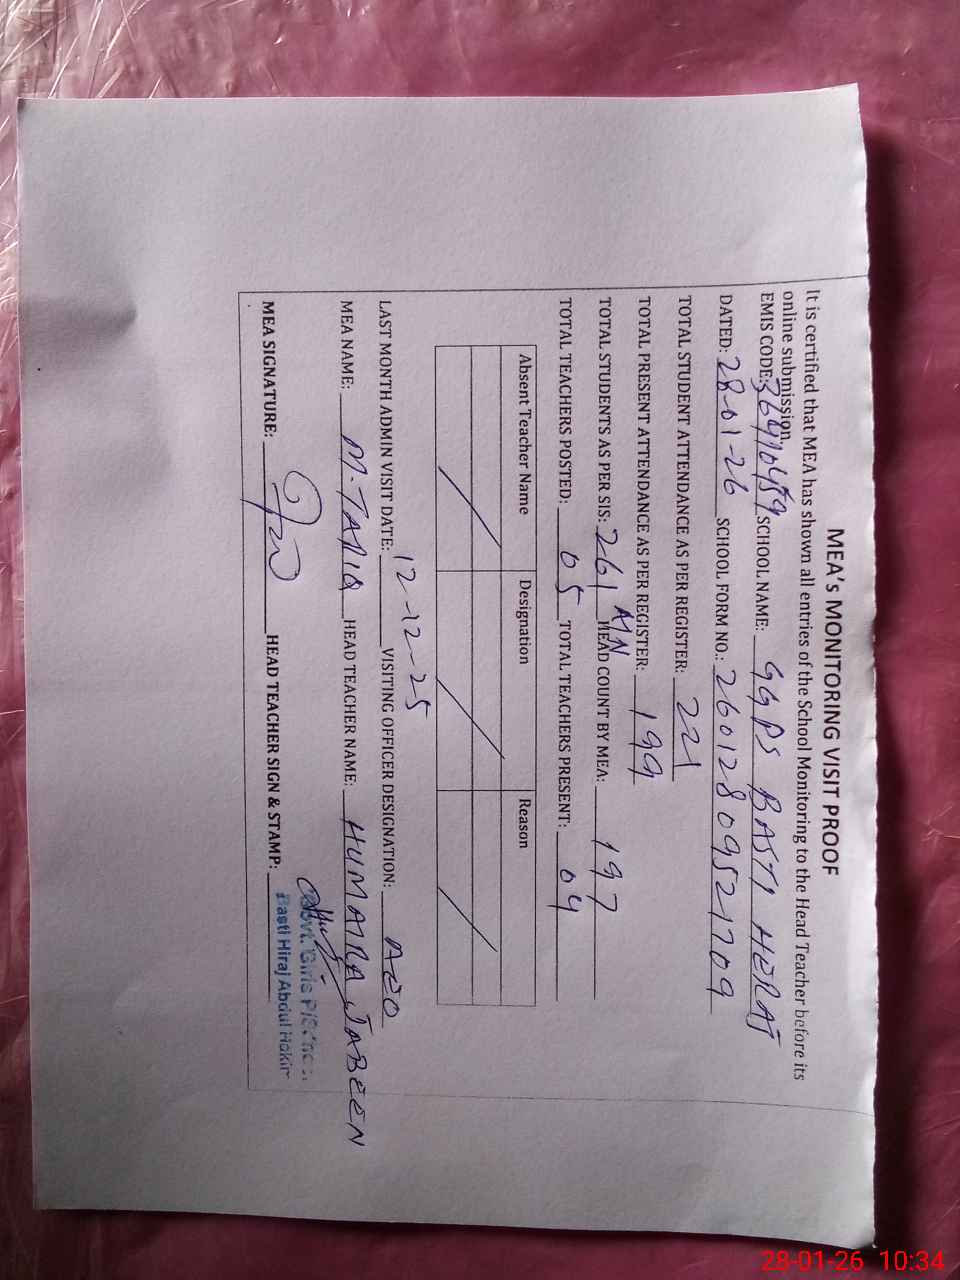 MEA's MONITORING VISIT PROOF
It is certified that MEA has shown all entries of the School Monitoring to the Head Teacher before its
online submission.
EMIS CODE: 36410459 SCHOOL NAME: GGPS BASTI HERAJ
DATED: 28-01-26 SCHOOL FORM NO.: 26012809521709
TOTAL STUDENT ATTENDANCE AS PER REGISTER: 221
TOTAL PRESENT ATTENDANCE AS PER REGISTER: 199
TOTAL STUDENTS AS PER SIS: 261 HEAD COUNT BY MEA: 197
TOTAL TEACHERS POSTED: 05 TOTAL TEACHERS PRESENT: 04
Absent Teacher Name Designation Reason
LAST MONTH ADMIN VISIT DATE: 12-12-25 VISITING OFFICER DESIGNATION: AEO
MEA NAME: M. TARIQ HEAD TEACHER NAME: HUMAIRA JABEEN
MEA SIGNATURE: HEAD TEACHER SIGN & STAMP:
Govt. Girls P/School
Basti Hiraj Abdul Hakim
28-01-26 10:34